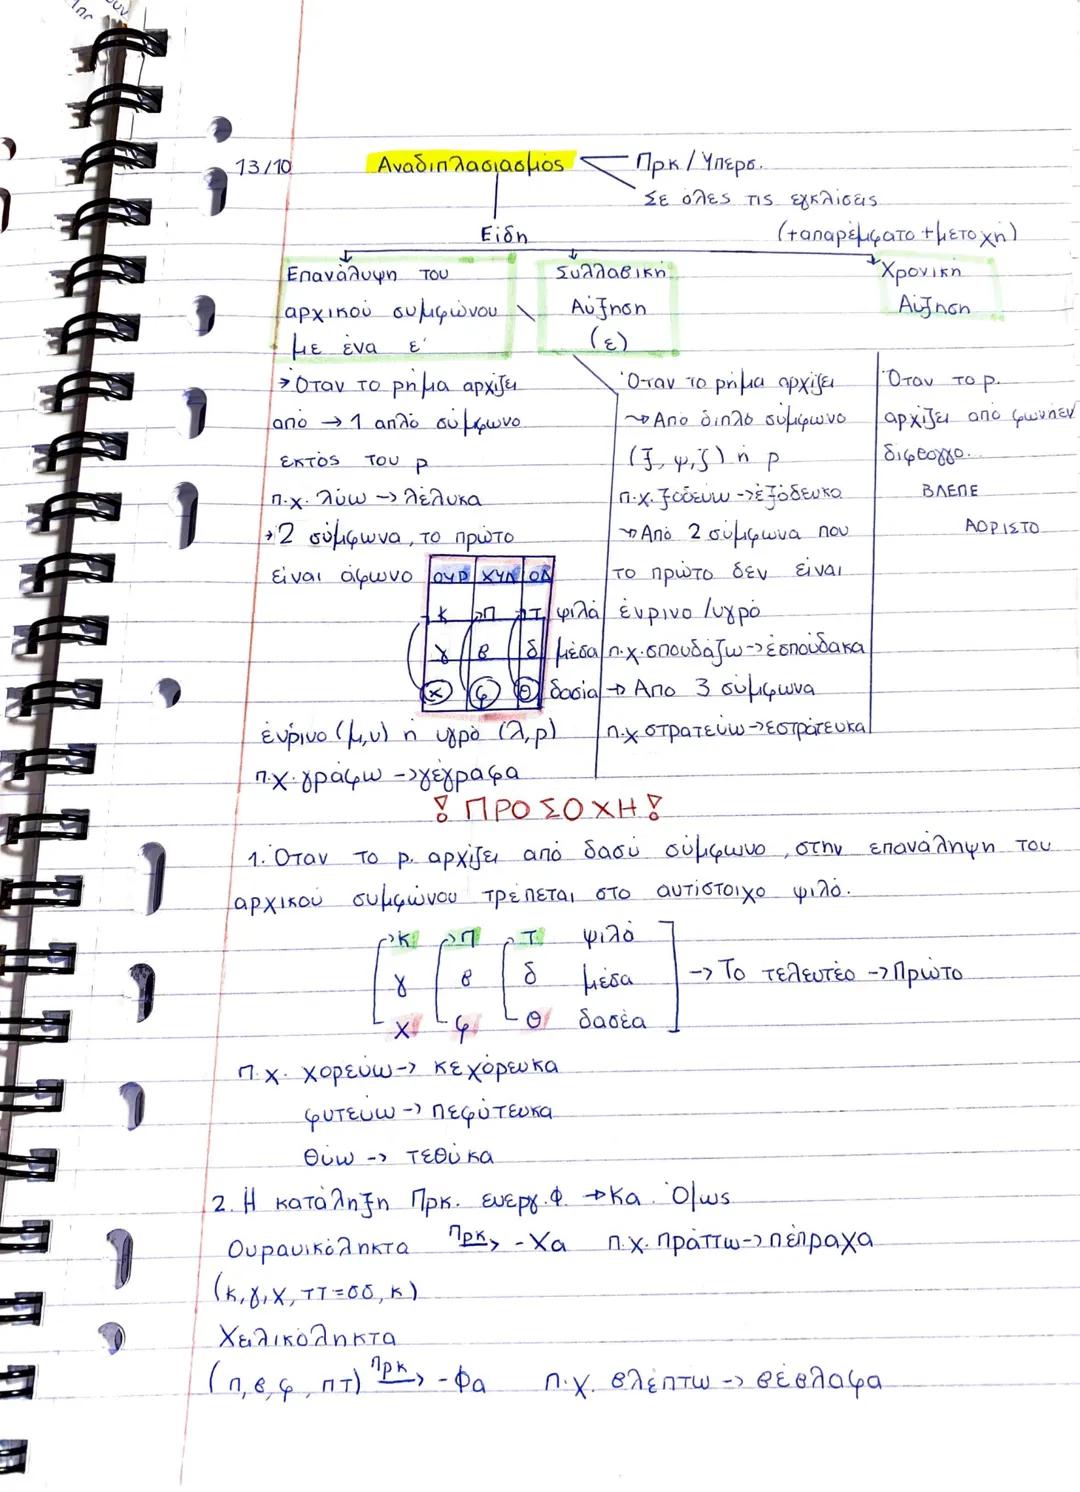 13/10 Αναδιπλασιασμός Πρκ/Υπερσ.
Σε όλες τις εγκλίσεις
(+απαρέμφατο+μετοχή)
Είδη
Επανάλυψη του
αρχικού συμφώνου
με ένα ε
→Όταν το ρήμα αρχίζει
από → 1 απλό σύμφωνο
εκτός του ρ
π.χ. λύω → λέλυκα
→2 σύμφωνα, το πρώτο
είναι άφωνο
ΟΥΡ ΧΥΛ ΟΔ
κ π τ ψιλά
γ β δ μέσα
χ φ θ δασία
ένρινο (μ,ν) ή υγρό (λ,ρ)
π.χ. γράφω →γέγραφα
Συλλαβική
Αύξηση
(ε)
Όταν το ρήμα αρχίζει
→Από διπλό σύμφωνο
(ξ, ψ, ζ) ή ρ
π.χ. ξοδεύω →εξόδευκα
→Από 2 σύμφωνα που
το πρώτο δεν είναι
ένρινο/υγρό
π.χ. σπουδάζω→εσπούδακα
→ Απο 3 σύμφωνα
π.χ στρατεύω→εστράτευκα
Χρονική
Αύξηση
Όταν το ρ.
αρχίζει από φωνήεν
δίφθογγο..
ΒΛΕΠΕ
ΑΟΡΙΣΤΟ
! ΠΡΟΣΟΧΗ !
1. Όταν το ρ. αρχίζει από δασύ σύμφωνο, στην επανάληψη του
αρχικού συμφώνου τρέπεται στο αντίστοιχο ψιλό.
κ π τ ψιλό
γ β δ μέσα → Το τελευτέο → Πρώτο
χ φ θ δασέα
π.χ. χορεύω→ κεχόρευκα
φυτεύω → πεφύτευκα
θύω → τεθύκα
2. Η κατάληξη Πρκ. ενεργ. Φ. → Κα. Όμως
Ουρανικόληκτα Πρκ→ -Χα π.χ. πράττω→πέπραχα
(κ,γ,χ, ττ=σσ, κ)
Χειλικόληκτα
(π,β,φ, πτ) Πρκ→ -Φα π.χ. βλέπτω → βέβλαφα